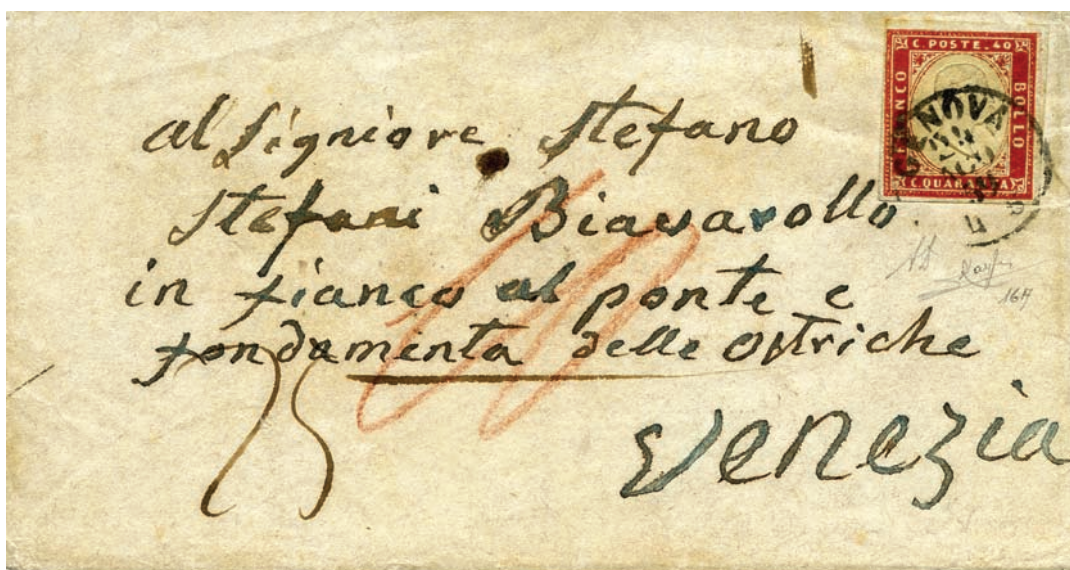 C. POSTE. 40
FRANCO
BOLLO
C. QUARANTA
GENOVA
al Signiore Stefano
Stefani Biavarollo
in fianco al ponte e
fondamenta delle Ostriche
Venezia
16H